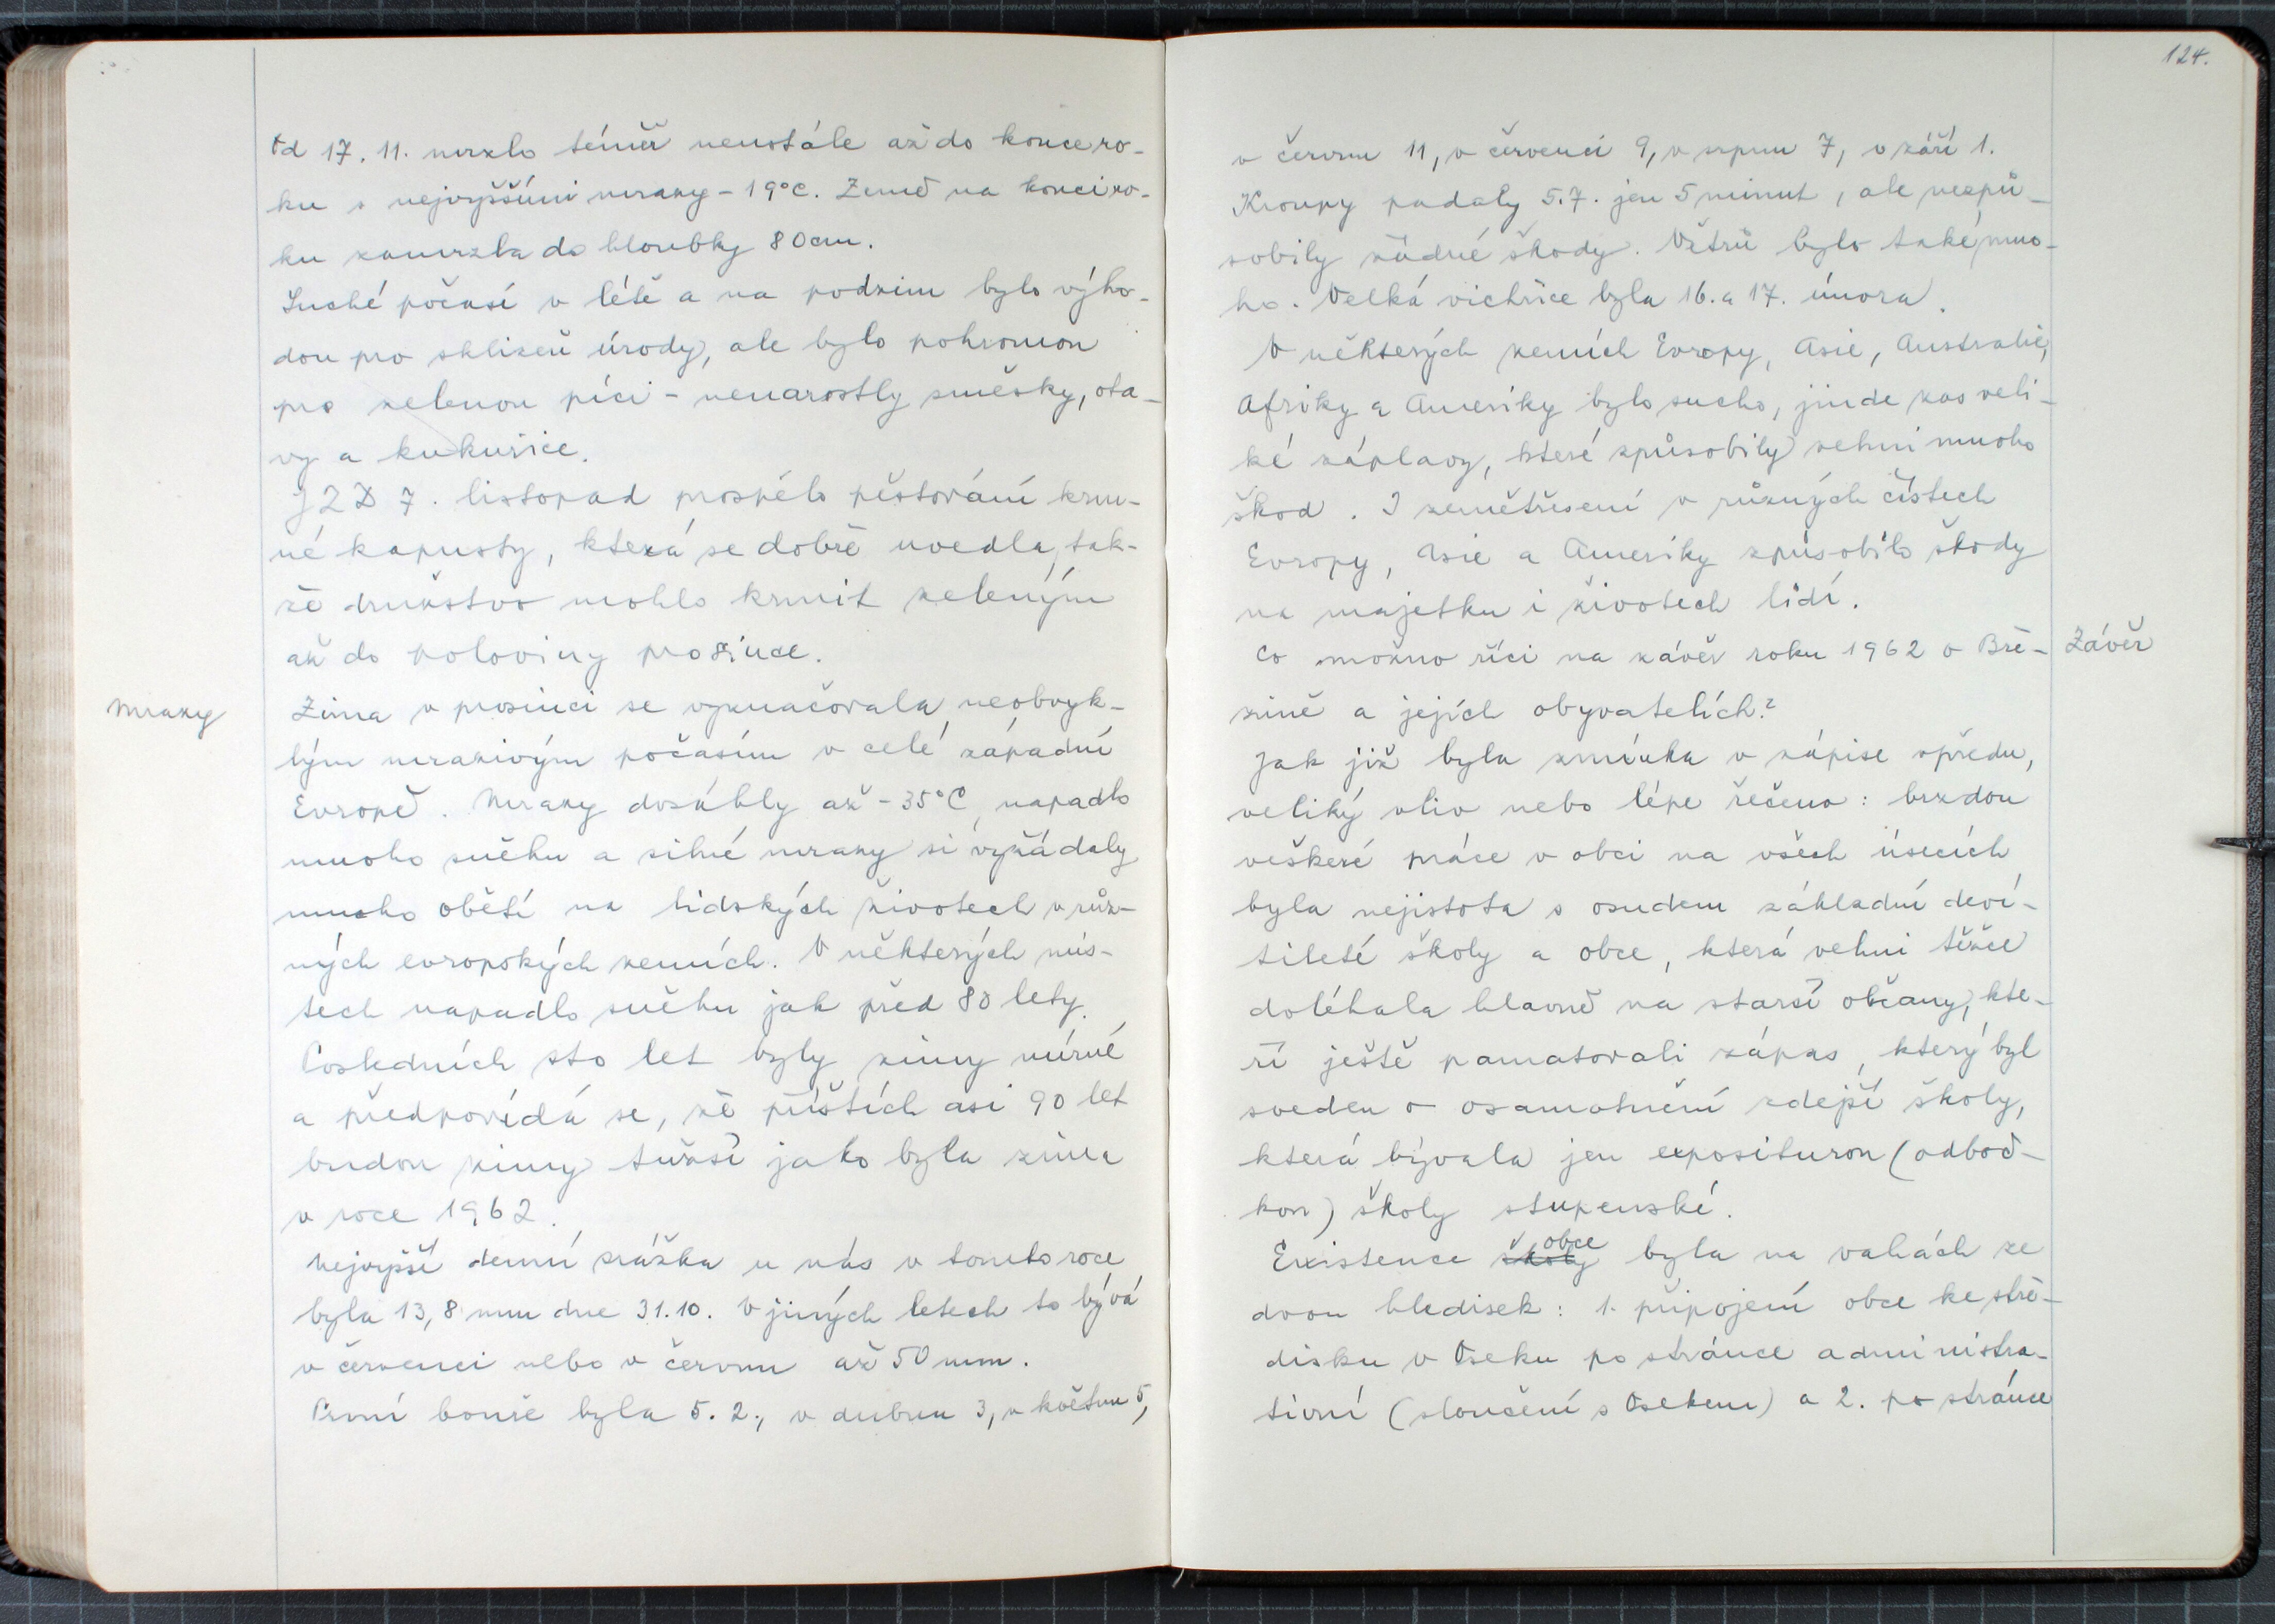 Od 17. 11. mrzlo téměř neustále až do konce ro-
ku s nejvyššími mrazy - 19°C. Země na konci ro-
ku zamrzla do hloubky 80 cm.
Suché počasí v létě a na podzim bylo výho-
dou pro sklizeň úrody, ale bylo pohromou
pro zelenou píci - nenarostly směsky, ota-
vy a kukuřice.
JZD 7. listopad prospělo pěstování krm-
né kapusty, která se dobře uvedla, tak-
že družstvo mohlo krmit zeleným
až do poloviny prosince.
Mrazy
Zima v prosinci se vyznačovala neobvyk-
lým mrazivým počasím v celé západní
Evropě. Mrazy dosáhly až - 35°C, napadlo
mnoho sněhu a silné mrazy si vyžádaly
mnoho obětí na lidských životech v růz-
ných evropských zemích. V některých mís-
tech napadlo sněhu jak před 80 lety.
Posledních sto let byly zimy mírné
a předpovídá se, že příštích asi 90 let
budou zimy tužší jako byla zima
v roce 1962.
Nejvyšší denní srážka u nás v tomto roce
byla 13,8 mm dne 31.10. V jiných letech to bývá
v červenci nebo v červnu až 50 mm.
První bouře byla 5. 2., v dubnu 3, v květnu 5,
124.
v červnu 11, v červenci 9, v srpnu 7, v září 1.
Kroupy padaly 5.7. jen 5 minut, ale nezpů-
sobily žádné škody. Větrů bylo také mno-
ho. Velká vichřice byla 16. a 17. února.
V některých zemích Evropy, Asie, Australie,
Afriky a Ameriky bylo sucho, jinde zas veli-
ké záplavy, které způsobily velmi mnoho
škod. I zemětřesení v různých částech
Evropy, Asie a Ameriky způsobilo škody
na majetku i životech lidí.
Co možno říci na závěr roku 1962 o Bře-
Závěr
zině a jejích obyvatelích?
Jak již byla zmínka v zápise vpředu,
veliký vliv nebo lépe řečeno: brzdou
veškeré práce v obci na všech úsecích
byla nejistota s osudem základní deví-
tileté školy a obce, která velmi těžce
doléhala hlavně na starší občany, kte-
ří ještě pamatovali zápas, který byl
sveden o osamotnění zdejší školy,
která bývala jen expositurou (odboč-
kou) školy stupenské.
Existence školy obce byla na vahách ze
dvou hledisek: 1. připojení obce ke stře-
disku v Oseku po stránce administra-
tivní (sloučení s Osekem) a 2. po stránce